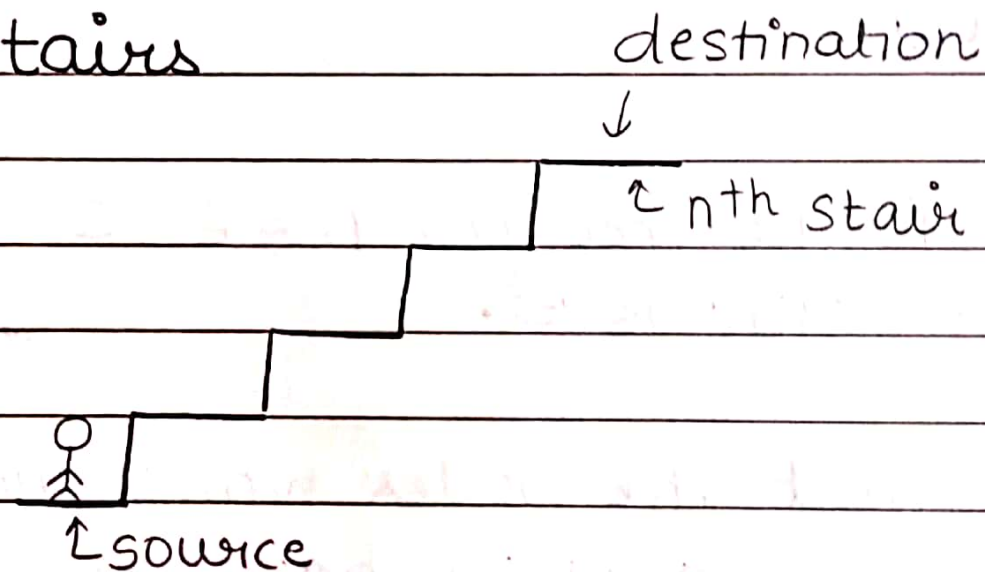 tairs
destination
nth stair
source